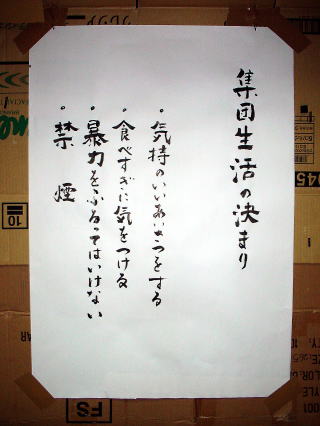 集団生活の決まり
・気持のいいあいさつをする
・食べすぎに気をつける
・暴力をふるってはいけない
・禁煙
10
FS